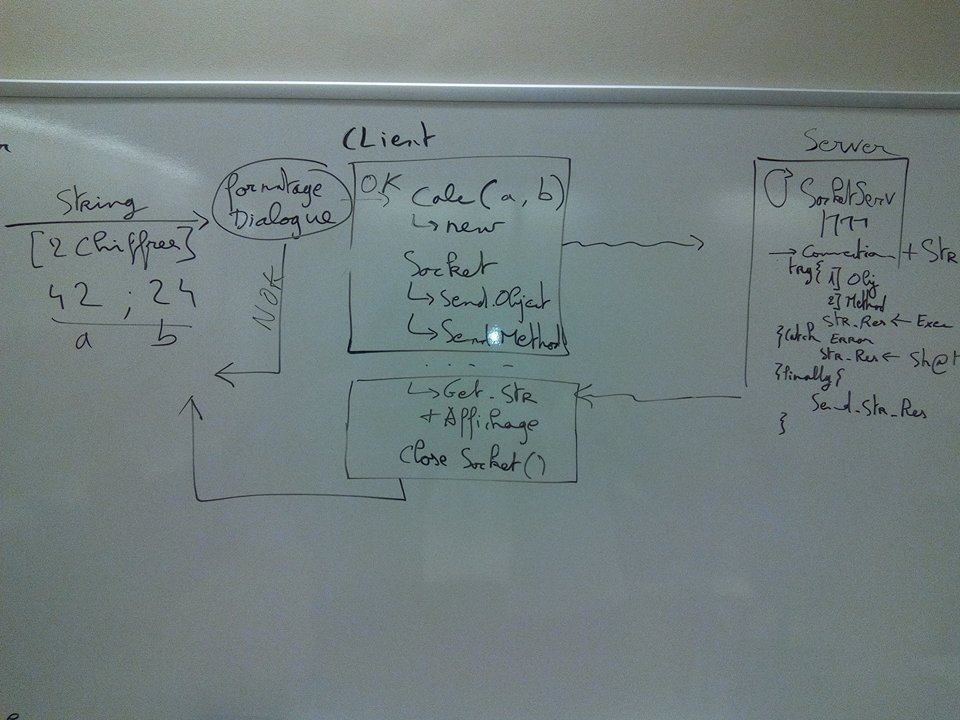 String
[2 Chiffres]
42 ; 24
a b
formatage
Dialogue
NOK
CLient
OK
Calc(a, b)
↳ new
Socket
↳ Send.Object
↳ Send.Method
. . . -
↳ Get_Str
+ Affichage
Close Socket()
Server
SocketServ
→ Connection + STR
{ 1] Obj
2] Method
STR_Res ← Exec
}Catch ERROR
STR_Res ← Sh@t
}finally{
Send_STR_Res
}